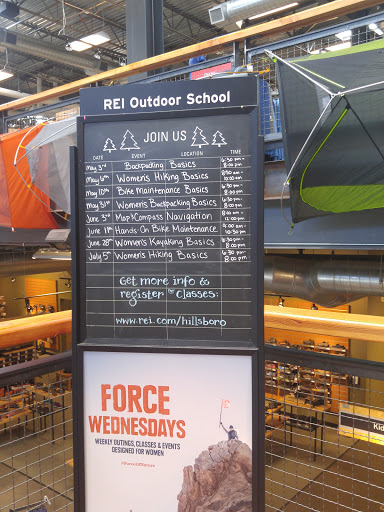 REI Outdoor School
JOIN US
DATE EVENT LOCATION TIME
May 3rd Backpacking Basics 6:30 pm - 8:00 pm
May 6th Womens Hiking Basics 8:30 am - 10:00 am
May 10th Bike Maintenance Basics 6:30 pm - 8:00 pm
May 31st Women's Backpacking Basics 6:30 pm - 8:00 pm
June 3rd Map & Compass Navigation
June 11th Hands-On Bike Maintenance
June 28th Womens Kayaking Basics 6:30 pm - 8:00 pm
July 5th Womens Hiking Basics 6:30 pm - 8:00 pm
Get more info &
register for Classes:
www.rei.com/hillsboro
FORCE
WEDNESDAYS
WEEKLY OUTINGS, CLASSES & EVENTS
DESIGNED FOR WOMEN
#ForceOfNature
Kid